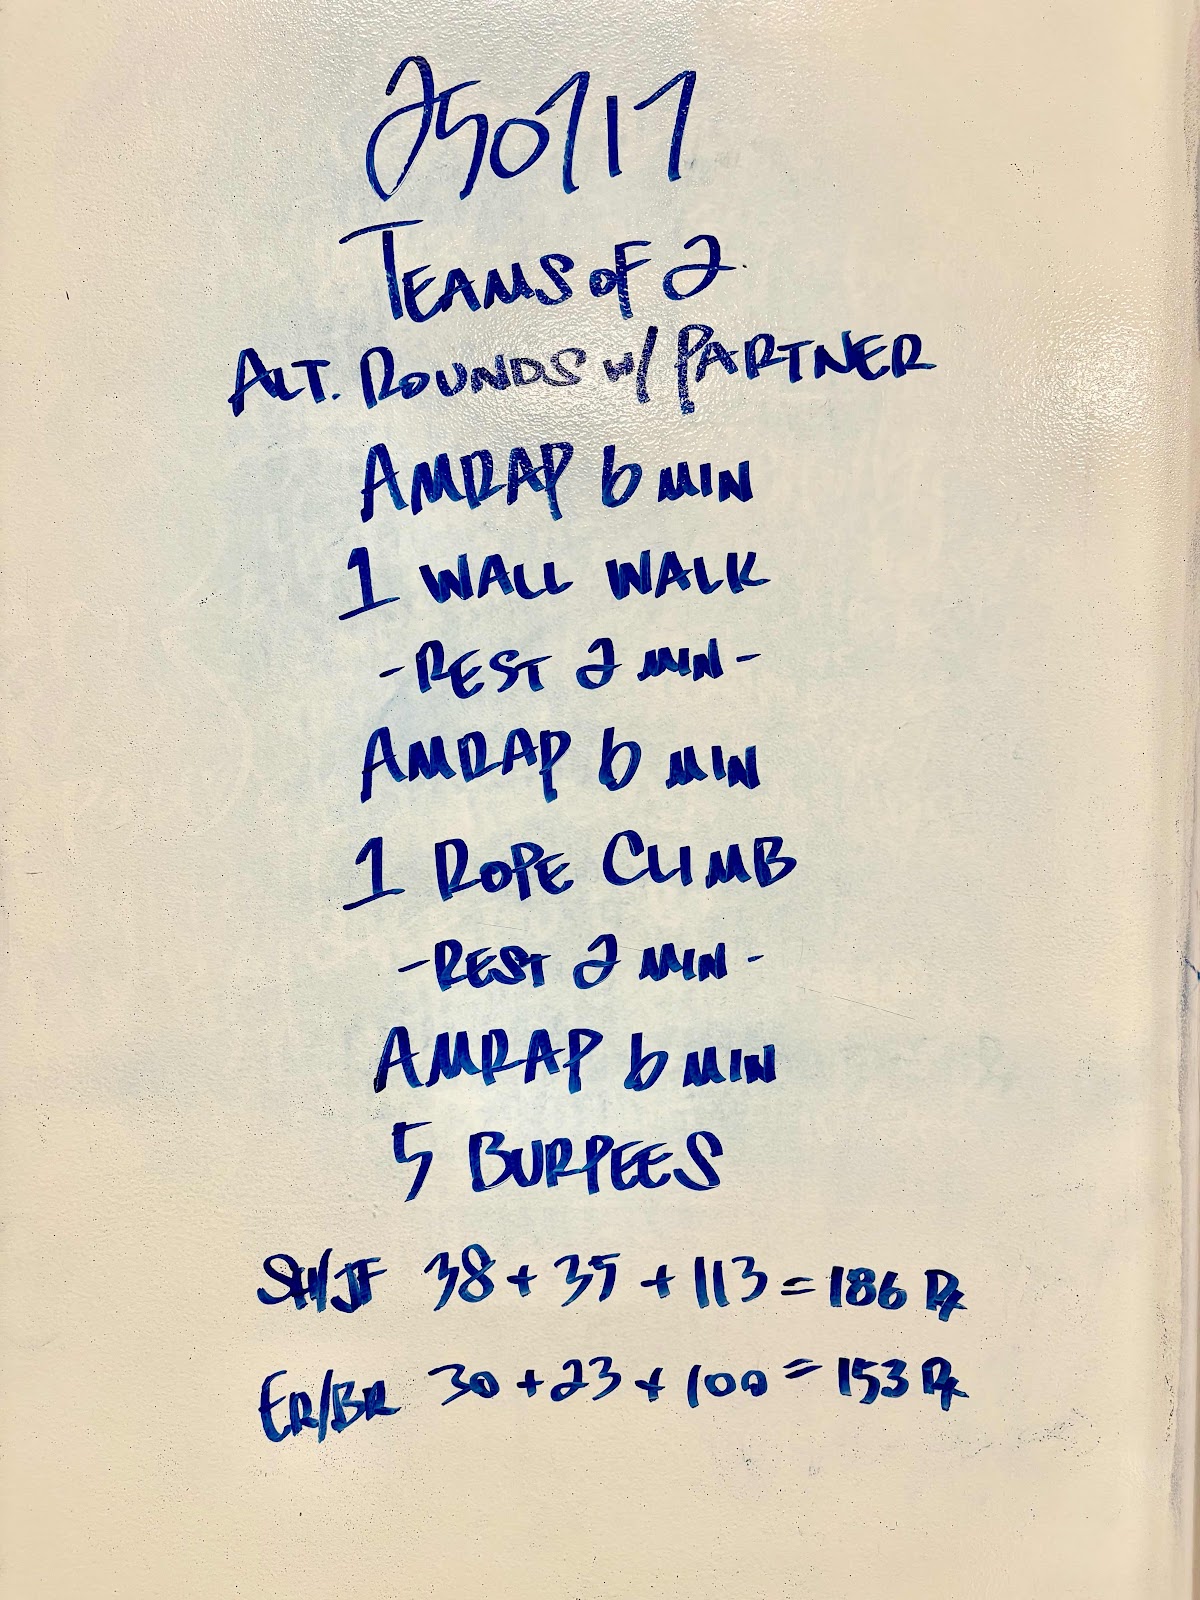 250717
TEAMS OF 2
ALT. ROUNDS W/ PARTNER
AMRAP 6 MIN
1 WALL WALK
-REST 2 MIN-
AMRAP 6 MIN
1 ROPE CLIMB
-REST 2 MIN-
AMRAP 6 MIN
5 BURPEES
SH/JF 38 + 35 + 113 = 186 Rx
ER/BR 30 + 23 + 100 = 153 Rx